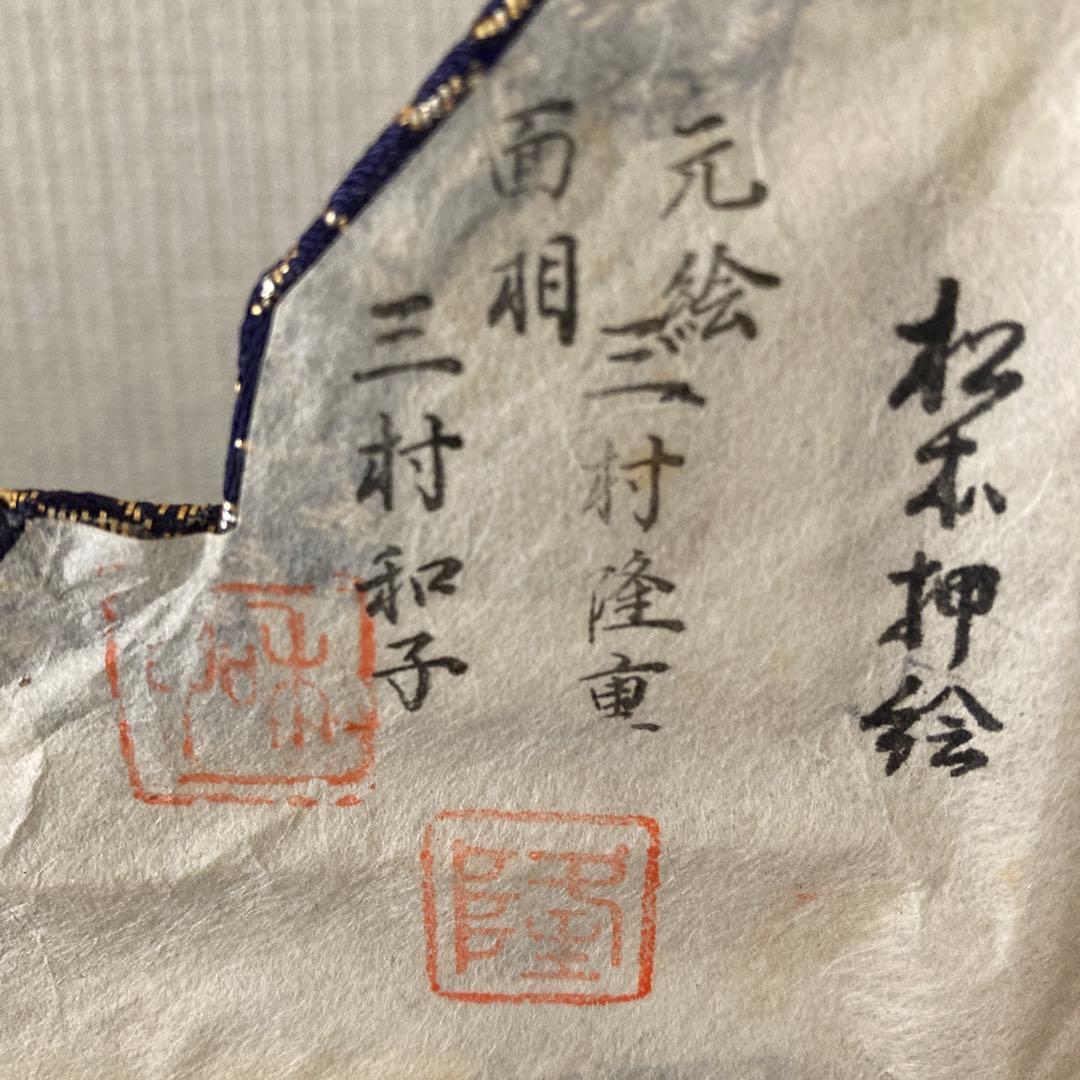 松本押絵
元絵
三村隆重
面相
三村和子
隆